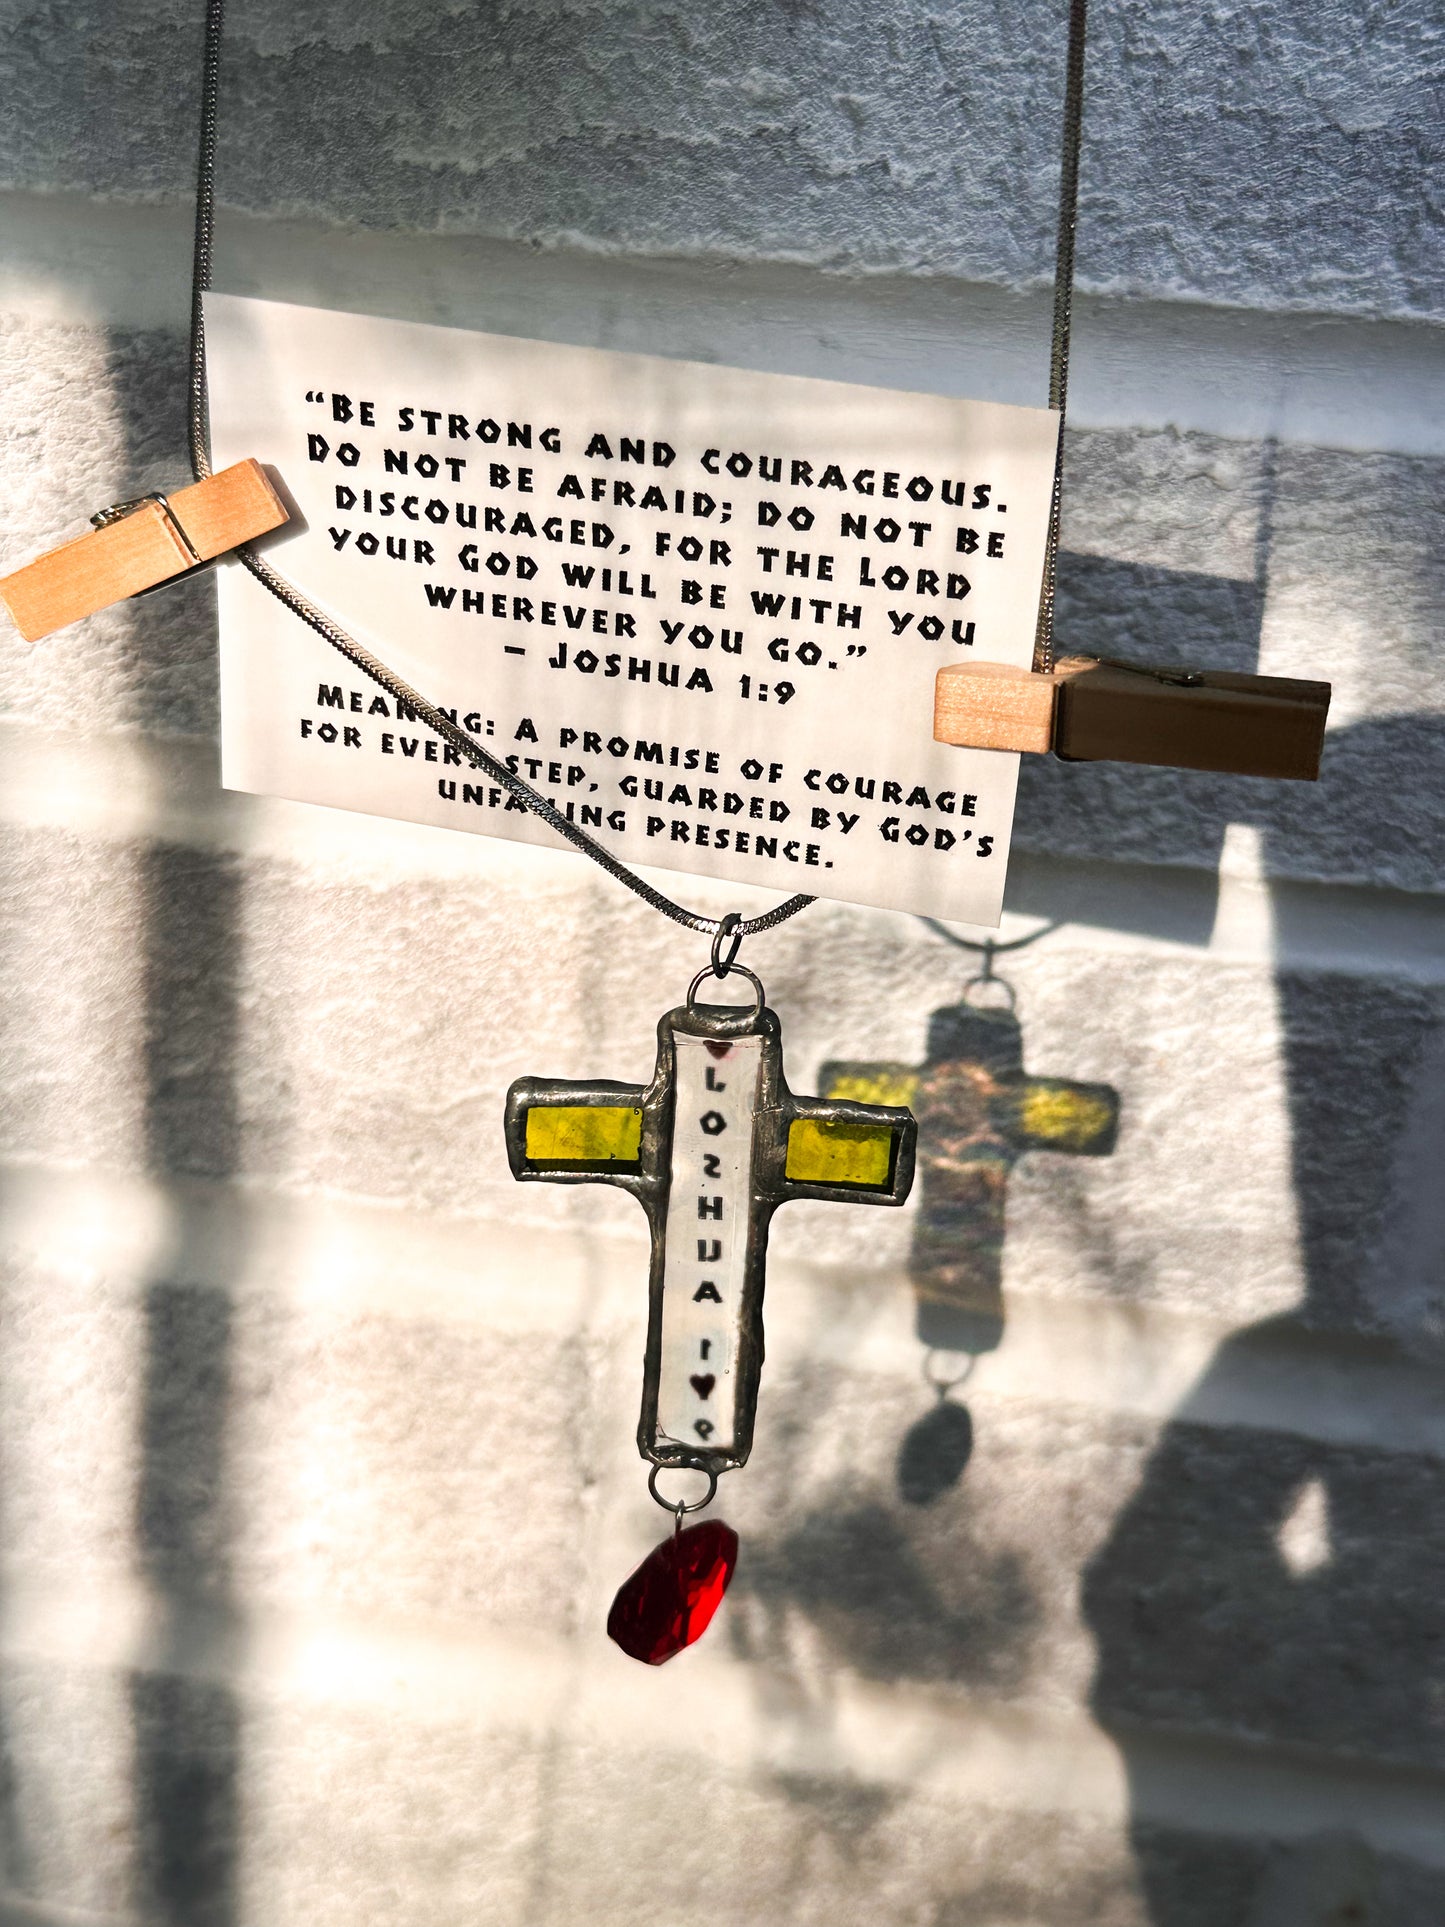 “BE STRONG AND COURAGEOUS.
DO NOT BE AFRAID; DO NOT BE
DISCOURAGED, FOR THE LORD
YOUR GOD WILL BE WITH YOU
WHEREVER YOU GO.”
– JOSHUA 1:9
MEANING: A PROMISE OF COURAGE
FOR EVERY STEP, GUARDED BY GOD’S
UNFAILING PRESENCE.
♥
J
O
S
H
U
A
1
♥
9